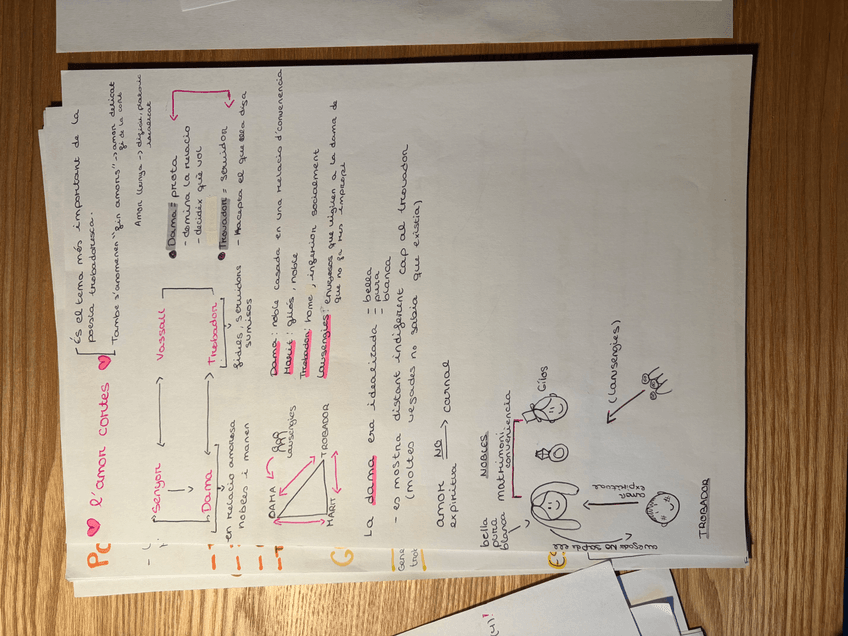 l'amor cortes
És el tema més important de la
poesia trobadoresca.
També s'anomenen "fin amors" → amor delicat
fi de la cort
Amor llenga → digical, platonic
idealitzat
Senyor ↔ Vassall
Dama ↔ Trobador
en relacio amorosa
nobles i manen
fidels, servidors
sumisos
Dama = prota
- domina la relacio
- decidix què vol
Trovador = servidor
- Accepta el que ella diga
DAMA
lausengies
MARIT
TROBADOR
Dama: noble casada en una relacio d'convenencia
Marit: gilós, noble
Trobador: home, inferior socialment
Lausengies: envejosos que vigilen a la dama de
que no fa res impropi
La dama era idealitzada = bella
= pura
= blanca
- es mostra distant indiferent cap al trovador
(moltes vegades no sabia que existia)
amor NO → carnal
espiritua
bella
pura
blanca
NOBLES
matrimoni
conveniencia
Gilos
amor
espiritual
(lausengies)
TROBADOR
PC
G
Gene
trot